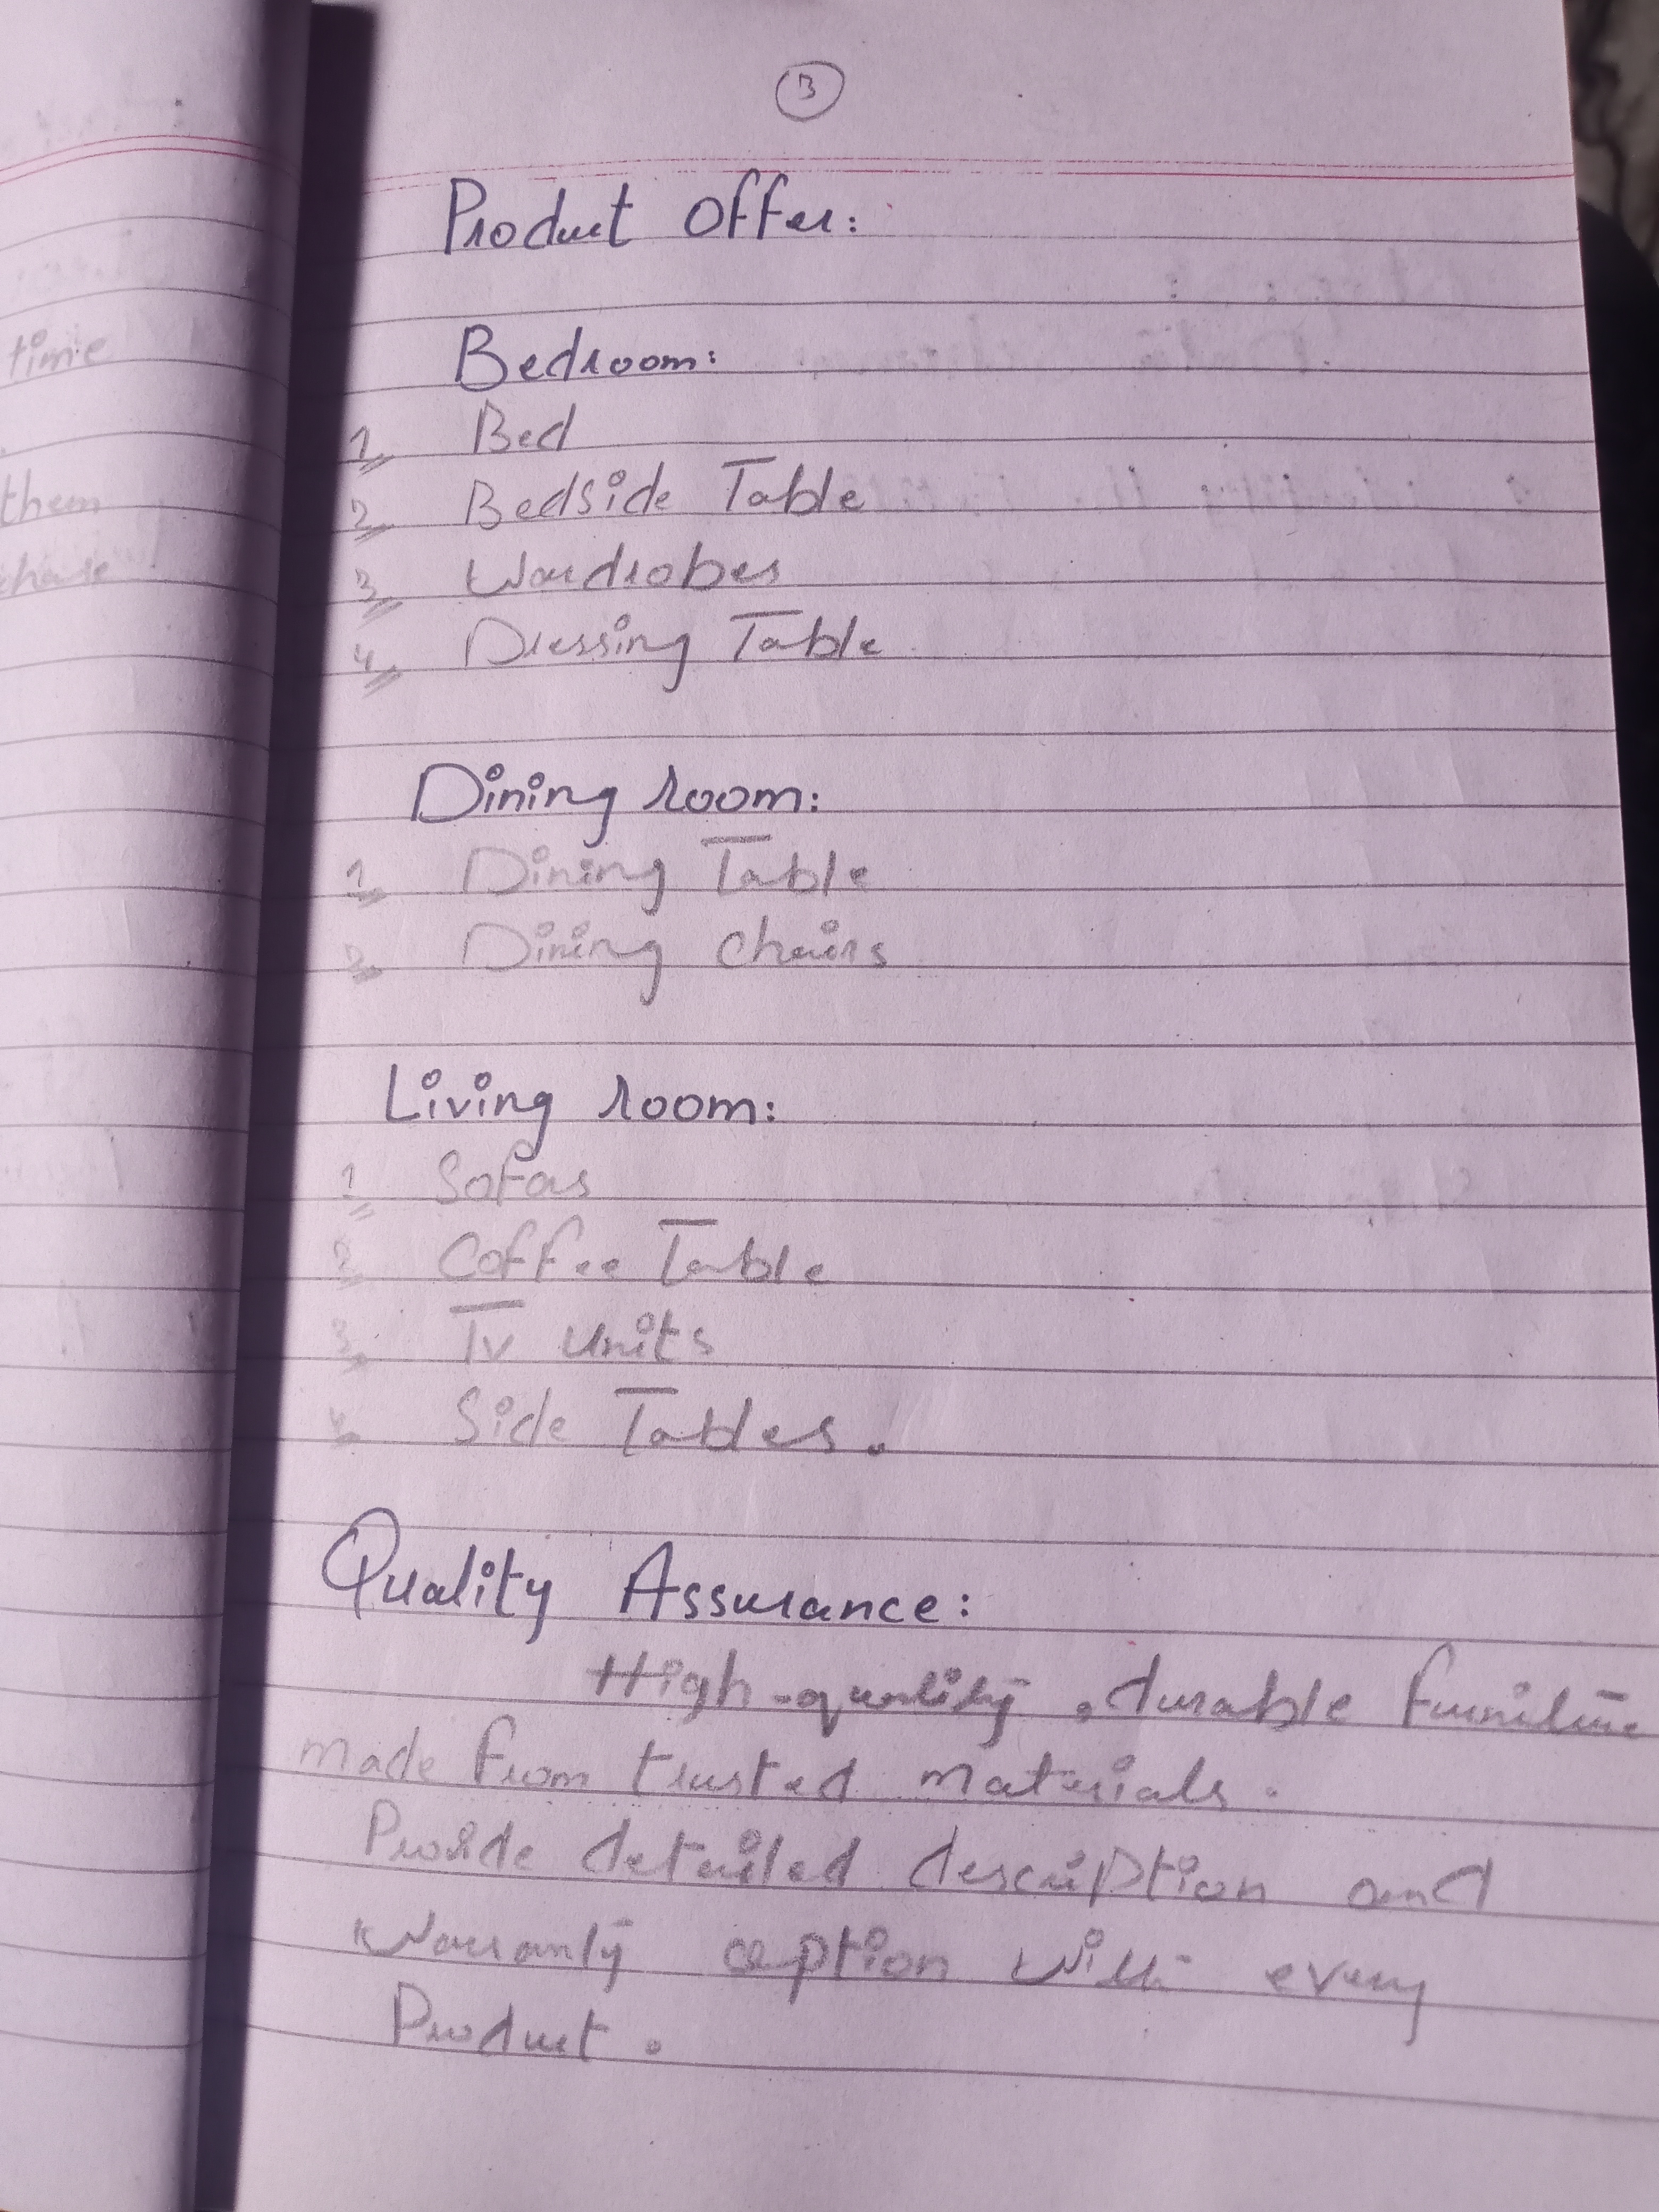 3
Product Offer:
Bedroom:
1. Bed
2. Bedside Table
3. Wardrobes
4. Dressing Table
Dining room:
1. Dining Table
2. Dining chairs
Living room:
1 Sofas
2 Coffee Table
3. Tv Units
4. Side Tables.
Quality Assurance:
High-quality, durable furniture
made from trusted materials.
Provide detailed description and
Warranty option with every
Product.
time
them